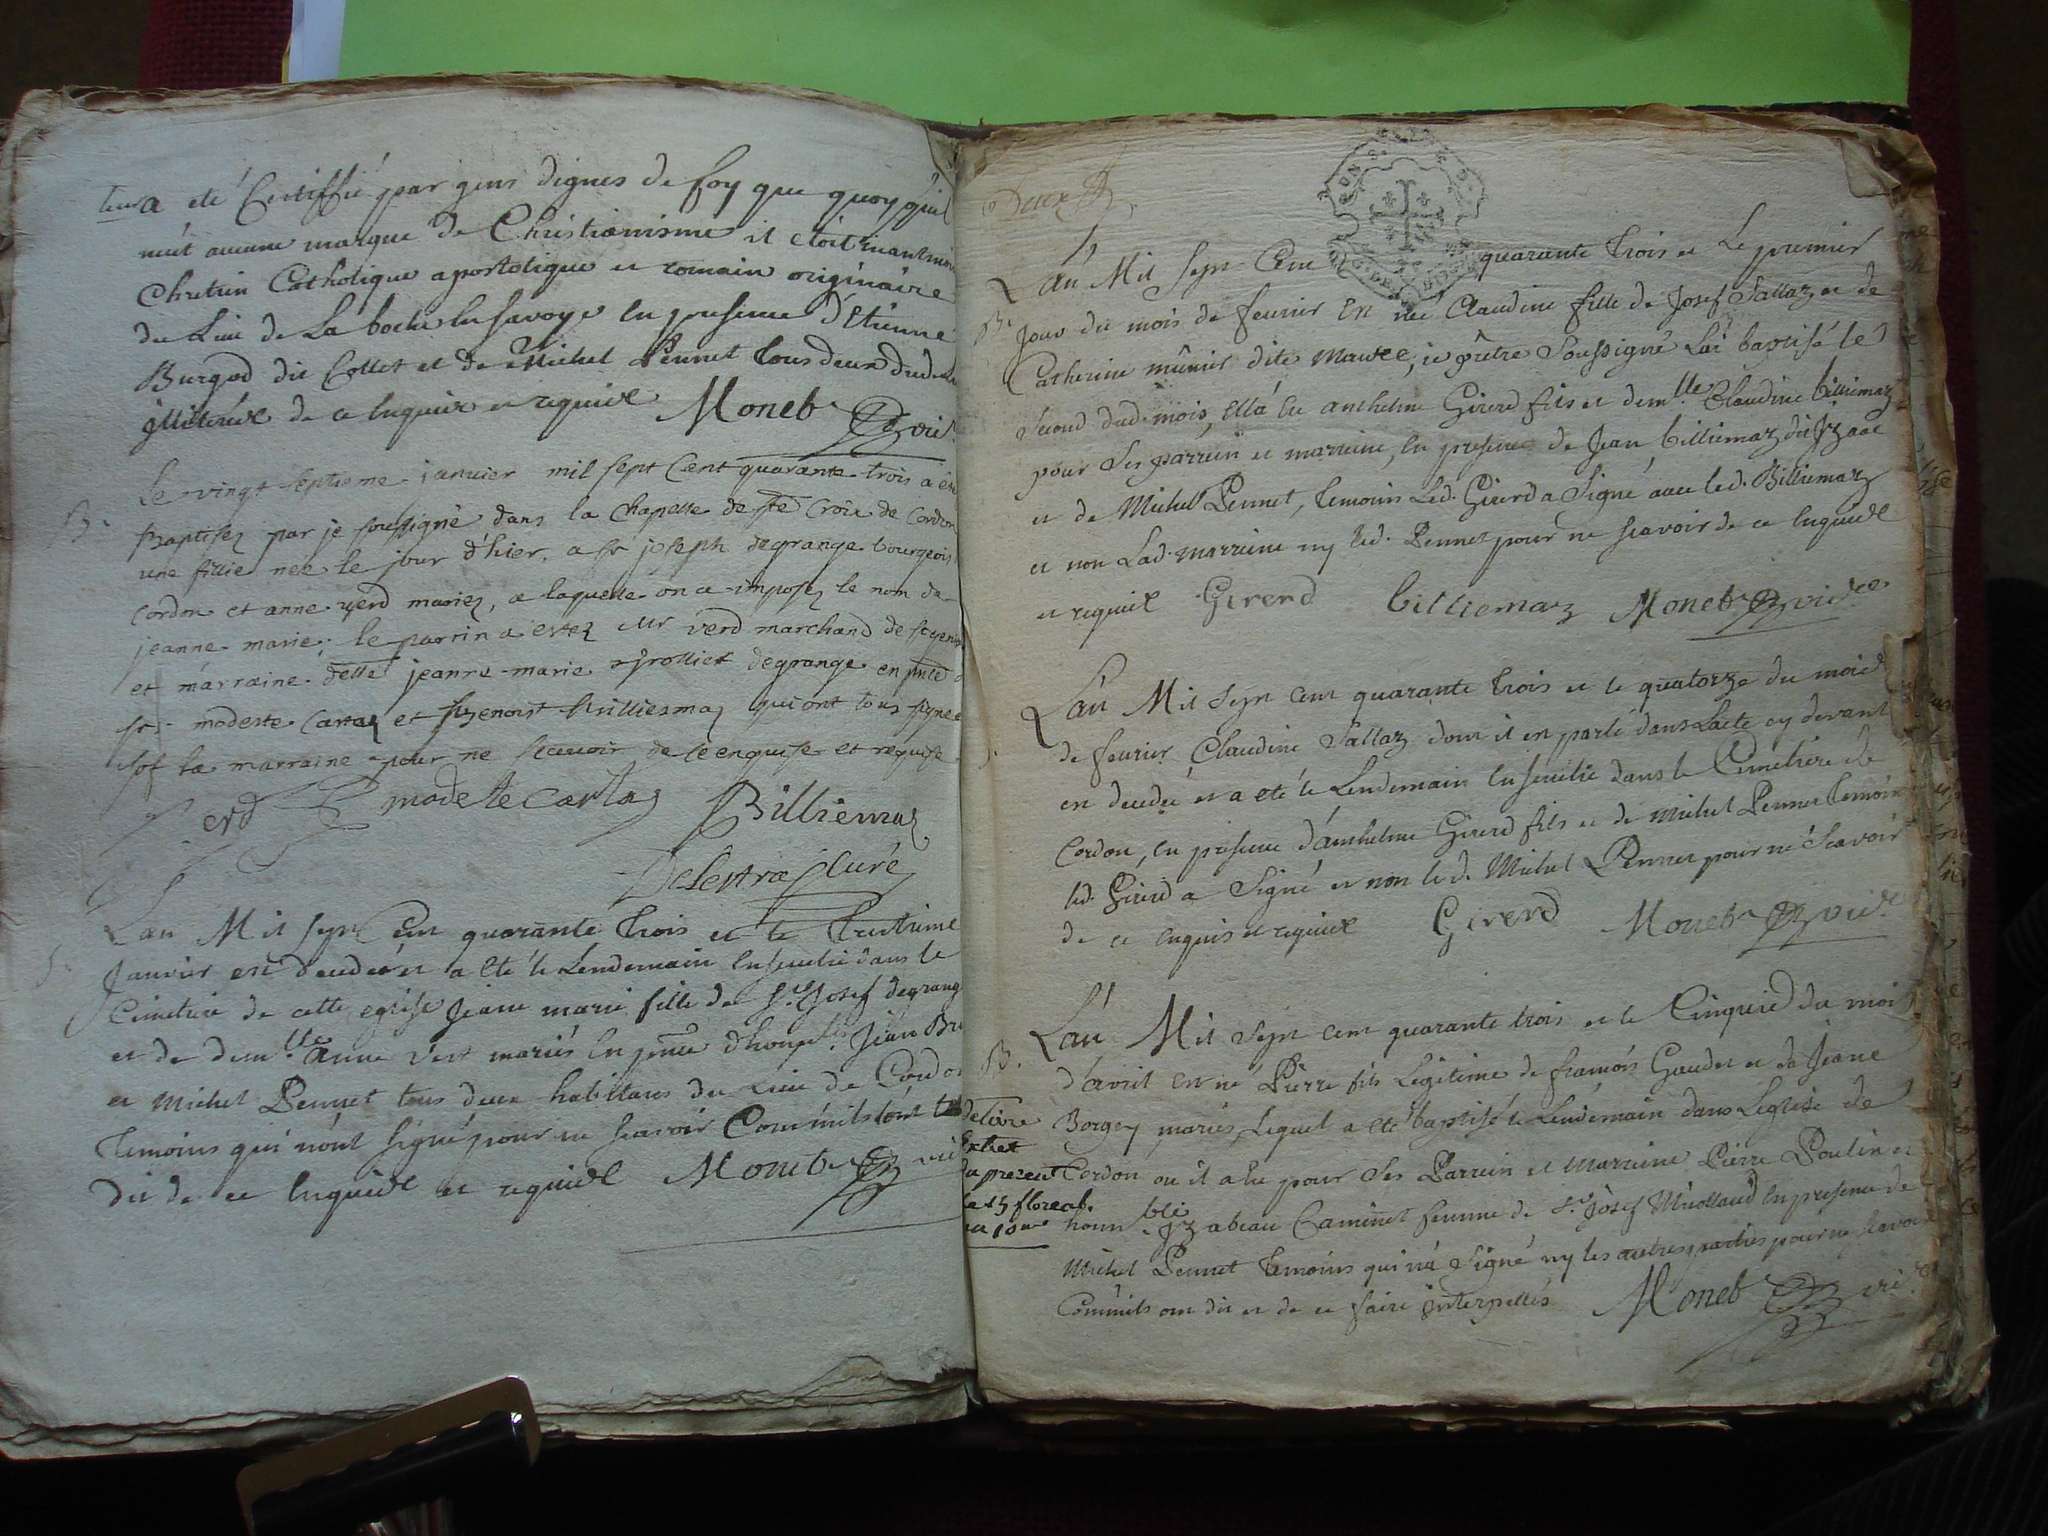 a eté Certiffié par gens dignes de foy que quoyquil
n'eut aucune marque de Christianisme il etoit
Chretien Catholique apostolique et romain originaire
du Lieu de La en Savoye en presence d'Etienne
Burgod dit Collet et de Michel Pennet tous deux
de ce enquis et requis Monet vic.
B. Le vingt septieme janvier mil sept cent quarante trois a été
Baptisez par je soussigné dans la chapelle de ste Croix de Cordon
une fillie née le jour d'hier, a sr joseph degrange bourgeois
cordon et anne verd mariez, a laquelle on a imposez le nom de
jeanne marie; le parrin a estez Mr verd marchand de
et marraine delle jeanne marie degrange en pnce
sr modeste Cartaz et benoist billiemaz qui ont tous signez
sof la marraine pour ne scavoir de ce enquise et requise
Verd modeste cartaz Billiemaz
Delestraz Curé
L'an Mil sept cent quarante trois et le trentieme
Janvier est decedée et a eté le Lendemain ensevelie dans le
Cimetiere de cette eglise Jeane marie fille de Sr. Josef degrange
et de demlle. anne vert mariés en pnce d'honble. Jean
et Michel Pennet tous deux habittans du Lieu de Cordon
temoins qui n'ont signé pour ne scavoir Comm'ils l'ont
dit de ce enquis et requis Monet vic
Deux
L'an Mil sept Cent quarante trois et Le premier
B. Jour du mois de fevrier est née Claudine fille de Josef Sallaz et de
Catherine munier dite , je prêtre Soussigné L'ai baptisé le
second dud. mois, Ell'a eu anthelme Girerd fils et demlle Claudine billiemaz
pour ses parrein et marreine, en presence de Jean billiemaz dit Izaac
et de Michel Pennet, temoins Led. Girerd a Signé avec led. Billiemaz
et non Lad. marreine ny led. Pennet pour ne scavoir de ce enquis
et requis Girerd billiemaz Monet vic.
L'an Mil Sept cent quarante trois et le quatorze du mois
de fevrier Claudine Sallaz dont il en parlé dans L'acte cy devant
en decedée et a eté le Lendemain ensevelie dans le Cimetiere de
Cordon, en presence d'anthelme Girerd fils et de Michel Pennet temoins
led. Girerd a Signé et non led. Michel Pennet pour ne Scavoir
de ce enquis et requis Girerd Monet vic.
L'an Mil Sept cent quarante trois et le Cinquie du mois
B. d'avril est né Pierre fils Legitime de francois Gaudet et de Jeane
Borgey mariés, Lequel a eté baptisé le Lendemain dans L'eglise de
Cordon ou il a eu pour ses Parrein et marreine Pierre Poulin et
honnble. Izabeau Caminet femme de Sr. Josef Miollaud en presence de
Michel Pennet temoins qui n'a Signé ny les autres parties pour ne scavoir
Comm'ils ont dit et de ce faire interpellés Monet vic.
delivré
Extret
du present
le 15 floreal
an 10me